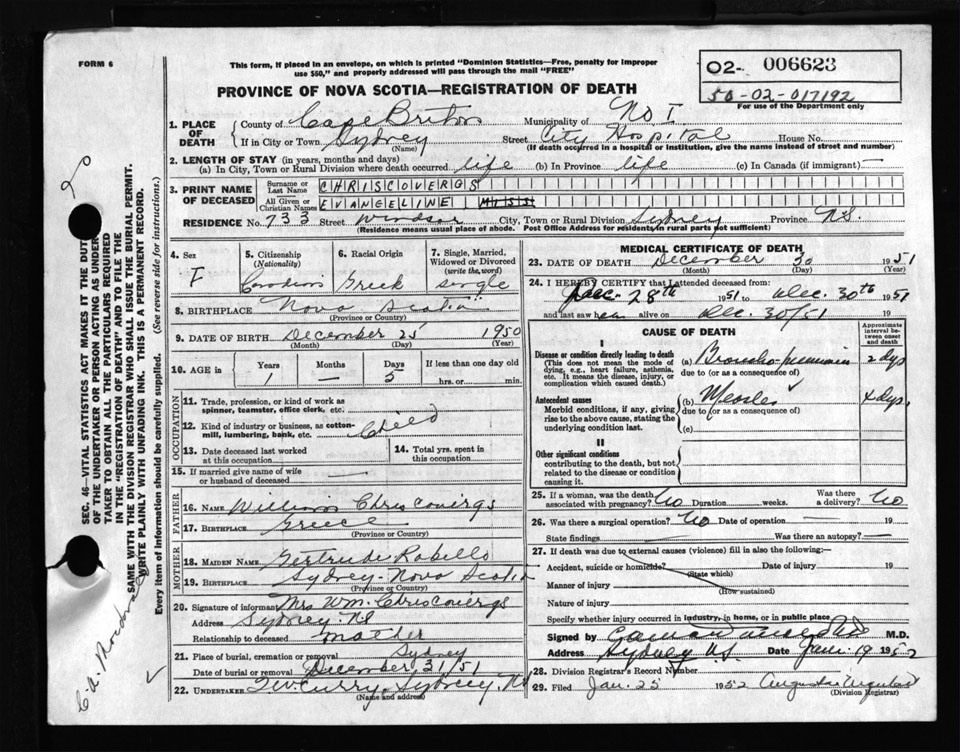 FORM 6
This form, if placed in an envelope, on which is printed "Dominion Statistics—Free, penalty for improper
use $50," and properly addressed will pass through the mail "FREE"
02- 006623
50-02-017192
For use of the Department only
PROVINCE OF NOVA SCOTIA—REGISTRATION OF DEATH
1. PLACE OF DEATH
County of Cape Breton Municipality of No I
If in City or Town Sydney Street City Hospital House No.
(Name) (If death occurred in a hospital or institution, give the name instead of street and number)
2. LENGTH OF STAY (in years, months and days)
(a) In City, Town or Rural Division where death occurred life (b) In Province life (c) In Canada (if immigrant) —
3. PRINT NAME OF DECEASED
Surname or Last Name CHRISCOVERGS
All Given or Christian Names EVANGELINE MISS
RESIDENCE No. 733 Street Windsor City, Town or Rural Division Sydney Province N.S.
(Residence means usual place of abode. Post Office Address for residents in rural parts not sufficient)
4. Sex
F
5. Citizenship
(Nationality)
Canadian
6. Racial Origin
Greek
7. Single, Married, Widowed or Divorced
(write the word)
single
8. BIRTHPLACE Nova Scotia
(Province or Country)
9. DATE OF BIRTH December 25 1950
(Month) (Day) (Year)
10. AGE in Years Months Days If less than one day old
1 — 5 hrs. or min.
OCCUPATION
11. Trade, profession, or kind of work as spinner, teamster, office clerk, etc.
12. Kind of industry or business, as cotton-mill, lumbering, bank, etc. Child
13. Date deceased last worked at this occupation
14. Total yrs. spent in this occupation
15. If married give name of wife or husband of deceased
FATHER
16. NAME William Chriscovergs
17. BIRTHPLACE Greece
(Province or Country)
MOTHER
18. MAIDEN NAME Gertrude Rabello
19. BIRTHPLACE Sydney Nova Scotia
(Province or Country)
20. Signature of informant Mrs Wm. Chriscovergs
Address Sydney NS
Relationship to deceased mother
21. Place of burial, cremation or removal Sydney
Date of burial or removal December 31/51
22. UNDERTAKER T.W. Curry, Sydney. NS
(Name and address)
MEDICAL CERTIFICATE OF DEATH
23. DATE OF DEATH December 30 1951
(Month) (Day) (Year)
24. I HEREBY CERTIFY that I attended deceased from:
Dec. 28th 1951 to Dec. 30th 1951
and last saw her alive on Dec. 30/51 19
CAUSE OF DEATH
Approximate interval between onset and death
I
Disease or condition directly leading to death
(This does not mean the mode of dying, e.g., heart failure, asthenia, etc. It means the disease, injury, or complication which caused death.)
(a) Broncho-pneumonia 2 dys
due to (or as a consequence of)
Antecedent causes
Morbid conditions, if any, giving rise to the above cause, stating the underlying condition last.
(b) Measles dys.
due to (or as a consequence of)
(c)
II
Other significant conditions
contributing to the death, but not related to the disease or condition causing it.
25. If a woman, was the death associated with pregnancy? No Duration weeks. Was there a delivery? No
26. Was there a surgical operation? No Date of operation — 19
State findings Was there an autopsy? —
27. If death was due to external causes (violence) fill in also the following:—
Accident, suicide or homicide? Date of injury 19
(State which)
Manner of injury
(How sustained)
Nature of injury
Specify whether injury occurred in industry, in home, or in public place
Signed by M.D.
Address Sydney N.S. Date Jan. 19 1952
28. Division Registrar's Record Number
29. Filed Jan. 25 1952
(Division Registrar)
SEC. 46—VITAL STATISTICS ACT MAKES IT THE DUTY
OF THE UNDERTAKER OR PERSON ACTING AS UNDER-
TAKER TO OBTAIN ALL THE PARTICULARS REQUIRED
IN THE "REGISTRATION OF DEATH" AND TO FILE THE
SAME WITH THE DIVISION REGISTRAR WHO SHALL ISSUE THE BURIAL PERMIT.
WRITE PLAINLY WITH UNFADING INK. THIS IS A PERMANENT RECORD.
Every item of information should be carefully supplied. (See reverse side for instructions.)